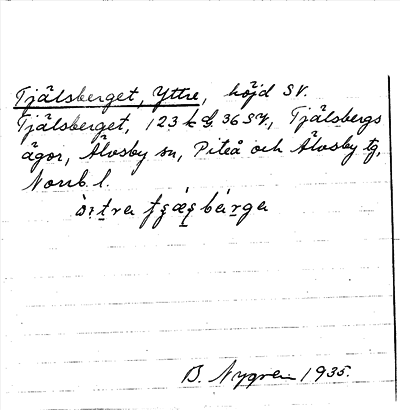 Tjälsberget, Yttre, höjd SV.
Tjälsberget, 123 k G. 36 SV, Tjälsbergs
ägor, Älvsby sn, Piteå och Älvsby tg,
Norrb. l.
B. Nygren 1935.